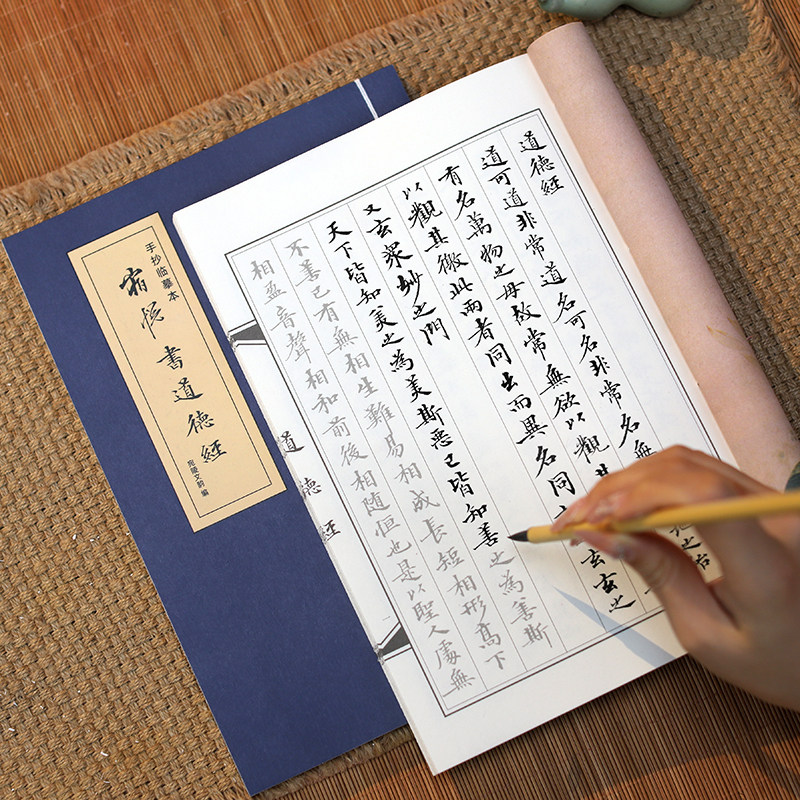 道德經
道可道非常道名可名非常名無地之始
有名萬物之母故常無欲以觀其
以觀其徼此兩者同出而異名同玄玄之
又玄眾妙之門
天下皆知美之為美斯惡已皆知善之為善斯
不善已有無相生難易相成長短相形高下
相盈音聲相和前後相隨恒也是以聖人處無
道德經
手抄临摹本
書道德經